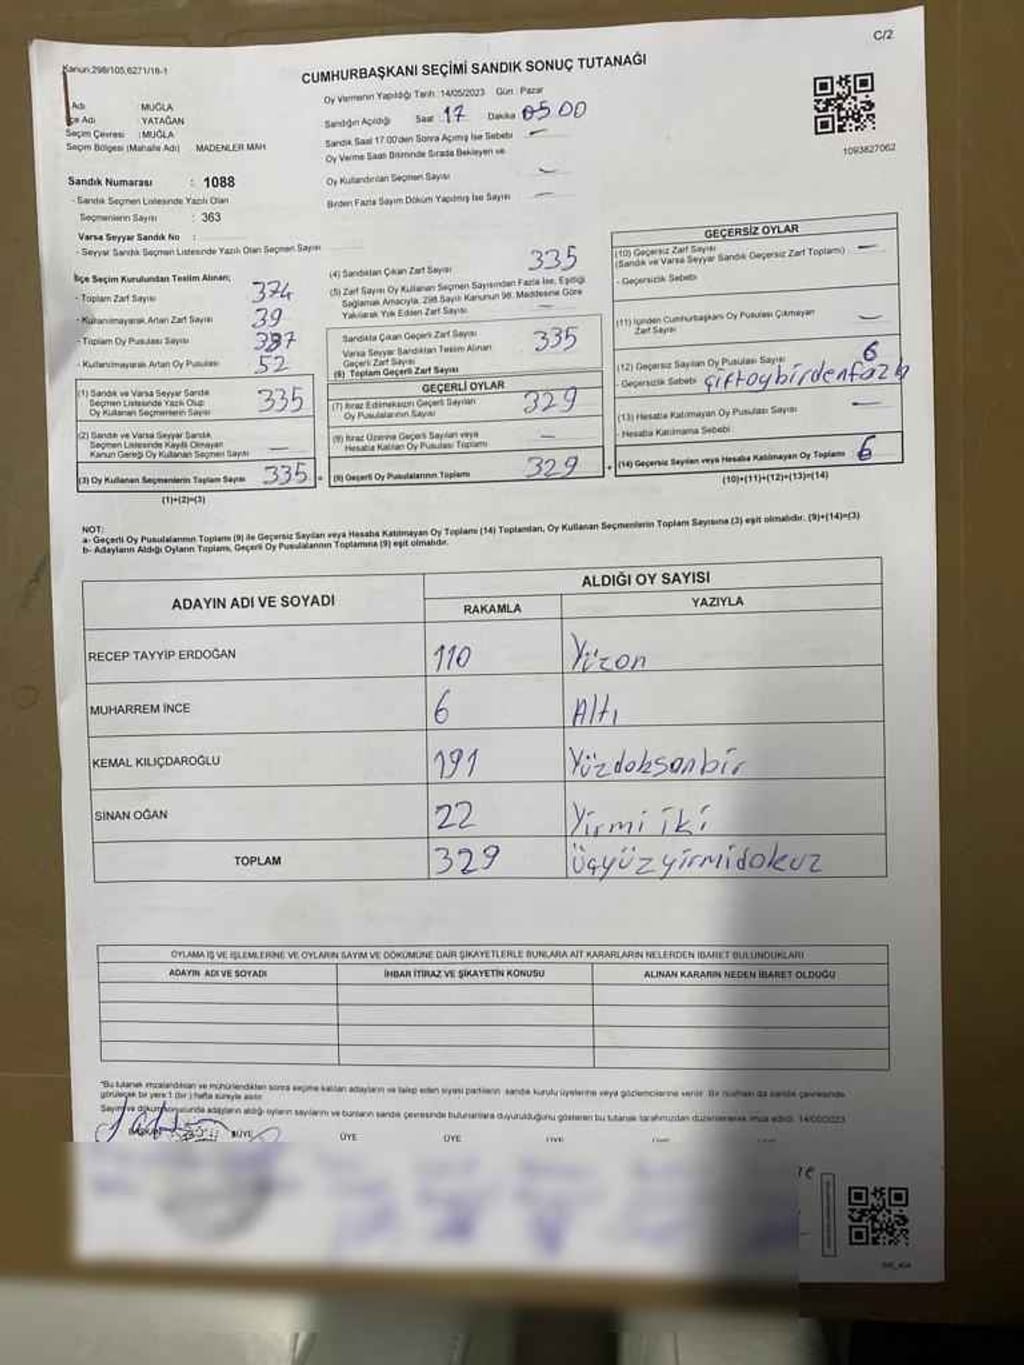 C/2
Kanun:298/105,6271/18-1
CUMHURBAŞKANI SEÇİMİ SANDIK SONUÇ TUTANAĞI
Oy Vermenin Yapıldığı Tarih :14/05/2023 Gün : Pazar
Adı MUĞLA
Sandığın Açıldığı Saat 17 Dakika 05.00
İlçe Adı YATAĞAN
Sandık Saat 17:00'den Sonra Açılmış İse Sebebi —
Seçim Çevresi : MUĞLA
Oy Verme Saati Bitiminde Sırada Bekleyen ve
Seçim Bölgesi (Mahalle Adı) MADENLER MAH
1093827062
Oy Kullandırılan Seçmen Sayısı —
Sandık Numarası : 1088
Birden Fazla Sayım Döküm Yapılmış İse Sayısı —
- Sandık Seçmen Listesinde Yazılı Olan
Seçmenlerin Sayısı : 363
Varsa Seyyar Sandık No :
- Seyyar Sandık Seçmen Listesinde Yazılı Olan Seçmen Sayısı
İlçe Seçim Kurulundan Teslim Alınan;
- Toplam Zarf Sayısı 374
- Kullanılmayarak Artan Zarf Sayısı 39
- Toplam Oy Pusulası Sayısı 387
- Kullanılmayarak Artan Oy Pusulası 52
(1) Sandık ve Varsa Seyyar Sandık
Seçmen Listesinde Yazılı Olup
Oy Kullanan Seçmenlerin Sayısı 335
(2) Sandık ve Varsa Seyyar Sandık
Seçmen Listesinde Kayıtlı Olmayan
Kanun Gereği Oy Kullanan Seçmen Sayısı —
(3) Oy Kullanan Seçmenlerin Toplam Sayısı 335
(1)+(2)=(3)
(4) Sandıktan Çıkan Zarf Sayısı 335
(5) Zarf Sayısı Oy Kullanan Seçmen Sayısından Fazla İse, Eşitliği
Sağlamak Amacıyla, 298 Sayılı Kanunun 98. Maddesine Göre
Yakılarak Yok Edilen Zarf Sayısı —
Sandıkta Çıkan Geçerli Zarf Sayısı
Varsa Seyyar Sandıktan Teslim Alınan
Geçerli Zarf Sayısı
(6) Toplam Geçerli Zarf Sayısı 335
GEÇERLİ OYLAR
(7) İtiraz Edilmeksizin Geçerli Sayılan
Oy Pusulalarının Sayısı 329
(8) İtiraz Üzerine Geçerli Sayılan veya
Hesaba Katılan Oy Pusulası Toplamı —
(9) Geçerli Oy Pusulalarının Toplamı 329
GEÇERSİZ OYLAR
(10) Geçersiz Zarf Sayısı —
(Sandık ve Varsa Seyyar Sandık Geçersiz Zarf Toplamı)
- Geçersizlik Sebebi
(11) İçinden Cumhurbaşkanı Oy Pusulası Çıkmayan
Zarf Sayısı —
(12) Geçersiz Sayılan Oy Pusulası Sayısı 6
- Geçersizlik Sebebi çiftoybirdenfazla
(13) Hesaba Katılmayan Oy Pusulası Sayısı —
- Hesaba Katılmama Sebebi
(14) Geçersiz Sayılan veya Hesaba Katılmayan Oy Toplamı : 6
(10)+(11)+(12)+(13)=(14)
NOT:
a- Geçerli Oy Pusulalarının Toplamı (9) ile Geçersiz Sayılan veya Hesaba Katılmayan Oy Toplamı (14) Toplamları, Oy Kullanan Seçmenlerin Toplam Sayısına (3) eşit olmalıdır. (9)+(14)=(3)
b- Adayların Aldığı Oyların Toplamı, Geçerli Oy Pusulalarının Toplamına (9) eşit olmalıdır.
ADAYIN ADI VE SOYADI
ALDIĞI OY SAYISI
RAKAMLA YAZIYLA
RECEP TAYYİP ERDOĞAN 110 Yüzon
MUHARREM İNCE 6 Altı
KEMAL KILIÇDAROĞLU 191 Yüzdoksanbir
SİNAN OĞAN 22 Yirmi iki
TOPLAM 329 Üçyüzyirmidokuz
OYLAMA İŞ VE İŞLEMLERİNE VE OYLARIN SAYIM VE DÖKÜMÜNE DAİR ŞİKAYETLERLE BUNLARA AİT KARARLARIN NELERDEN İBARET BULUNDUKLARI
ADAYIN ADI VE SOYADI İHBAR İTİRAZ VE ŞİKAYETİN KONUSU ALINAN KARARIN NEDEN İBARET OLDUĞU
"Bu tutanak imzalandıktan ve mühürlendikten sonra seçime katılan adayların ve talep eden siyasi partilerin sandık kurulu üyelerine veya gözlemcilerine verilir. Bir nüshası da sandık çevresinde
görülecek bir yere 1 (bir) hafta süreyle asılır.
Sayım ve dökümü sonunda adayların aldığı oyların sayılarını ve bunların sandık çevresinde bulunanlara duyurulduğunu gösteren bu tutanak tarafımızdan düzenlenerek imza edildi. 14/05/2023
BAŞKAN ÜYE ÜYE ÜYE ÜYE ÜYE